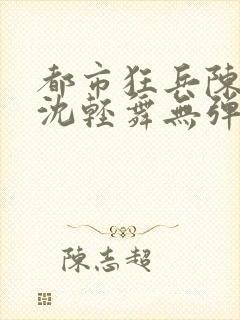 都市狂兵陳
沈輕舞無彈
陳志超